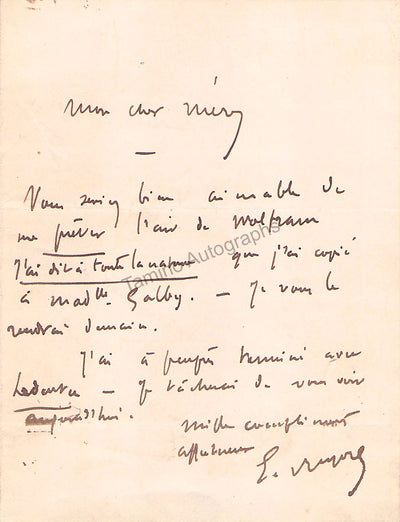 Mon cher Méry
Vous seriez bien aimable de
me prêter l'air de Wolfram
J'ai dit à toute la nature que j'ai copié
à Madlle Galby. — Je vous le
rendrai demain.
J'ai à peu près terminé avec
— Je tâcherai de vous voir
aujourd'hui.
mille compliments
affectueux
E.
Tamino Autographs